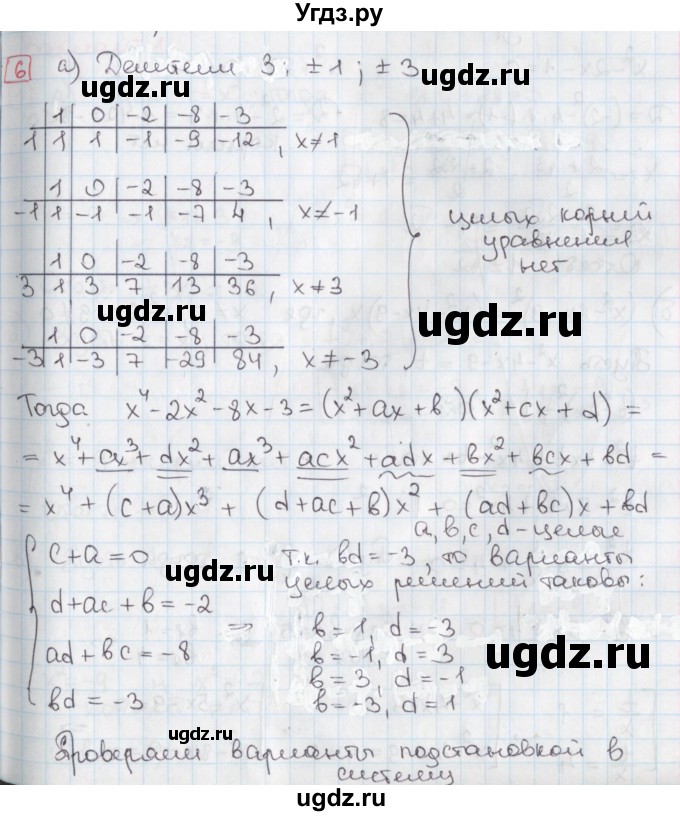 Угдз.ру
6 а) Делители 3: ±1; ±3
ugdz.ru
ugdz.ru
1 0 -2 -8 -3
1 1 1 -1 -9 -12, x≠1
1 0 -2 -8 -3
-1 1 -1 -1 -7 4, x≠-1
целых корней
уравнения
нет
1 0 -2 -8 -3
3 1 3 7 13 36, x≠3
ugdz.ru
ugdz.ru
1 0 -2 -8 -3
-3 1 -3 7 -29 84, x≠-3
Тогда x⁴-2x²-8x-3=(x²+ax+b)(x²+cx+d)=
=x⁴+cx³+dx²+ax³+acx²+adx+bx²+bcx+bd=
=x⁴+(c+a)x³+(d+ac+b)x²+(ad+bc)x+bd
a, b, c, d-целые
c+a=0 т.к. bd=-3, то варианты
ugdz.ru
целых решений таковы:
d+ac+b=-2
⇒ b=1, d=-3
ad+bc=-8 b=-1, d=3
ugdz.ru
b=3, d=-1
bd=-3 b=-3, d=1
ugdz.ru
Проверяем варианты подстановкой в
систему
ugdz.ru